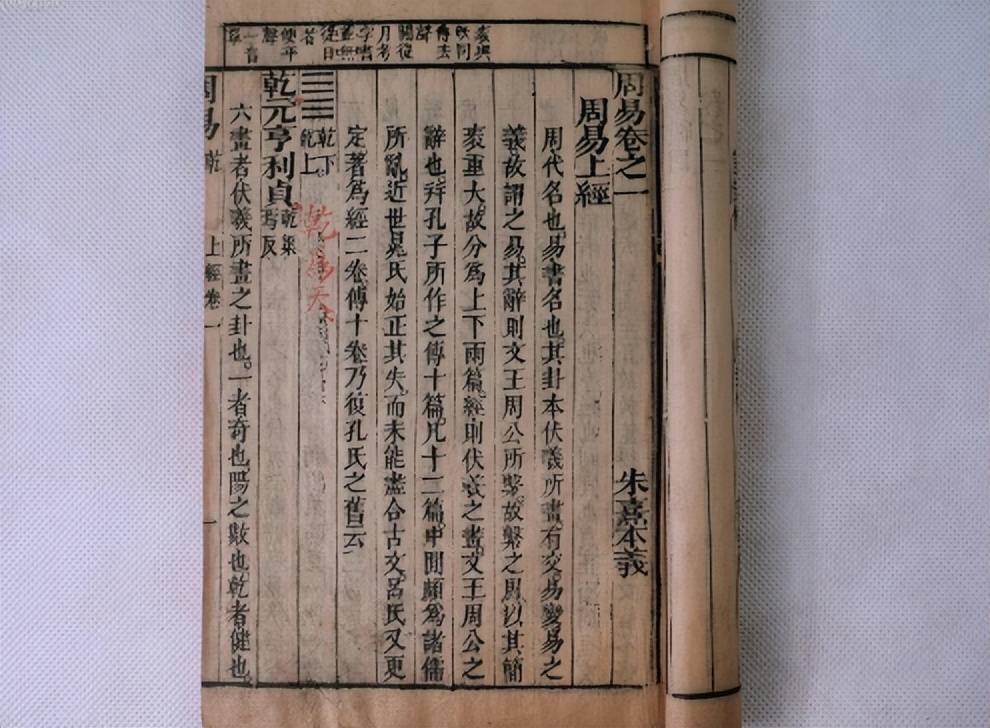 周易卷之一 朱熹本義
周易上經
周代名也。易書名也。其卦本伏羲所畫。有交易變易之
義。故謂之易。其辭則文王周公所繫。故繫之周。以其簡
袠重大。故分爲上下兩篇。經則伏羲之畫。文王周公之
辭也。幷孔子所作之傳十篇。凡十二篇。中閒頗爲諸儒
所亂。近世晁氏始正其失。而未能盡合古文。呂氏又更
定著爲經二卷。傳十卷。乃復孔氏之舊云
乾下
乾上
乾為天
乾元亨利貞
乾渠
焉反
六畫者伏羲所畫之卦也。一者奇也。陽之數也。乾者健也。
周易 乾 上經卷一 一